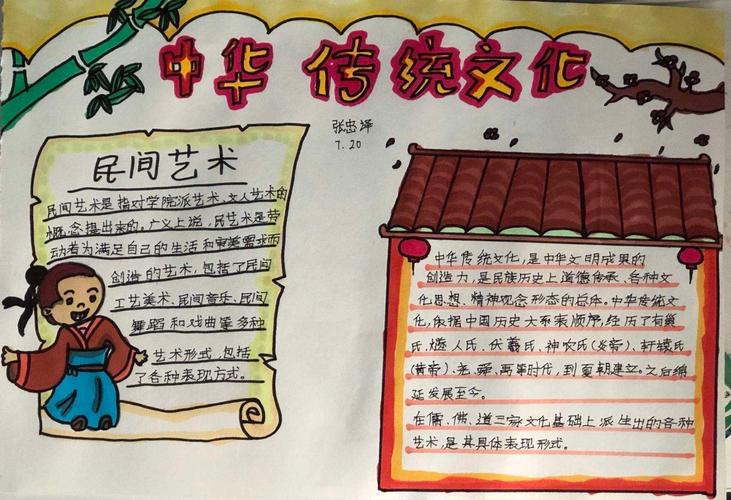 中华 传统文化
张忠泽
7.20
民间艺术
民间艺术是指对学院派艺术、文人艺术的
概念提出来的。广义上说，民艺术是劳
动者为满足自己的生活和审美需求而
创造的艺术，包括了民间
工艺美术、民间音乐、民间
舞蹈和戏曲等多种
艺术形式，包括
了各种表现方式。
中华传统文化，是中华文明成果的
创造力，是民族历史上道德传承、各种文
化思想、精神观念形态的总体。中华传统文
化，依据中国历史大系表顺序，经历了有巢
氏、燧人氏、伏羲氏、神农氏(炎帝)、轩辕氏
(黄帝)、尧、舜、禹等时代，到夏朝建立。之后绵
延发展至今。
在儒、佛、道三家文化基础上派生出的各种
艺术，是其具体表现形式。